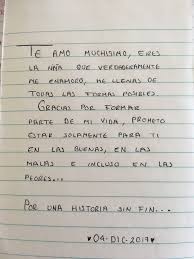 TE AMO MUCHISIMO, ERES
LA NIÑA QUE VERDADERAMENTE
ME ENAMORO, ME LLENAS DE
TODAS LAS FORMAS POSIBLES.
GRACIAS POR FORMAR
PARTE DE MI VIDA, PROMETO
ESTAR SOLAMENTE PARA TI
EN LAS BUENAS, EN LAS
MALAS E INCLUSO EN LAS
PEORES...
POR UNA HISTORIA SIN FIN...
♥ 04-DIC-2019 ♥